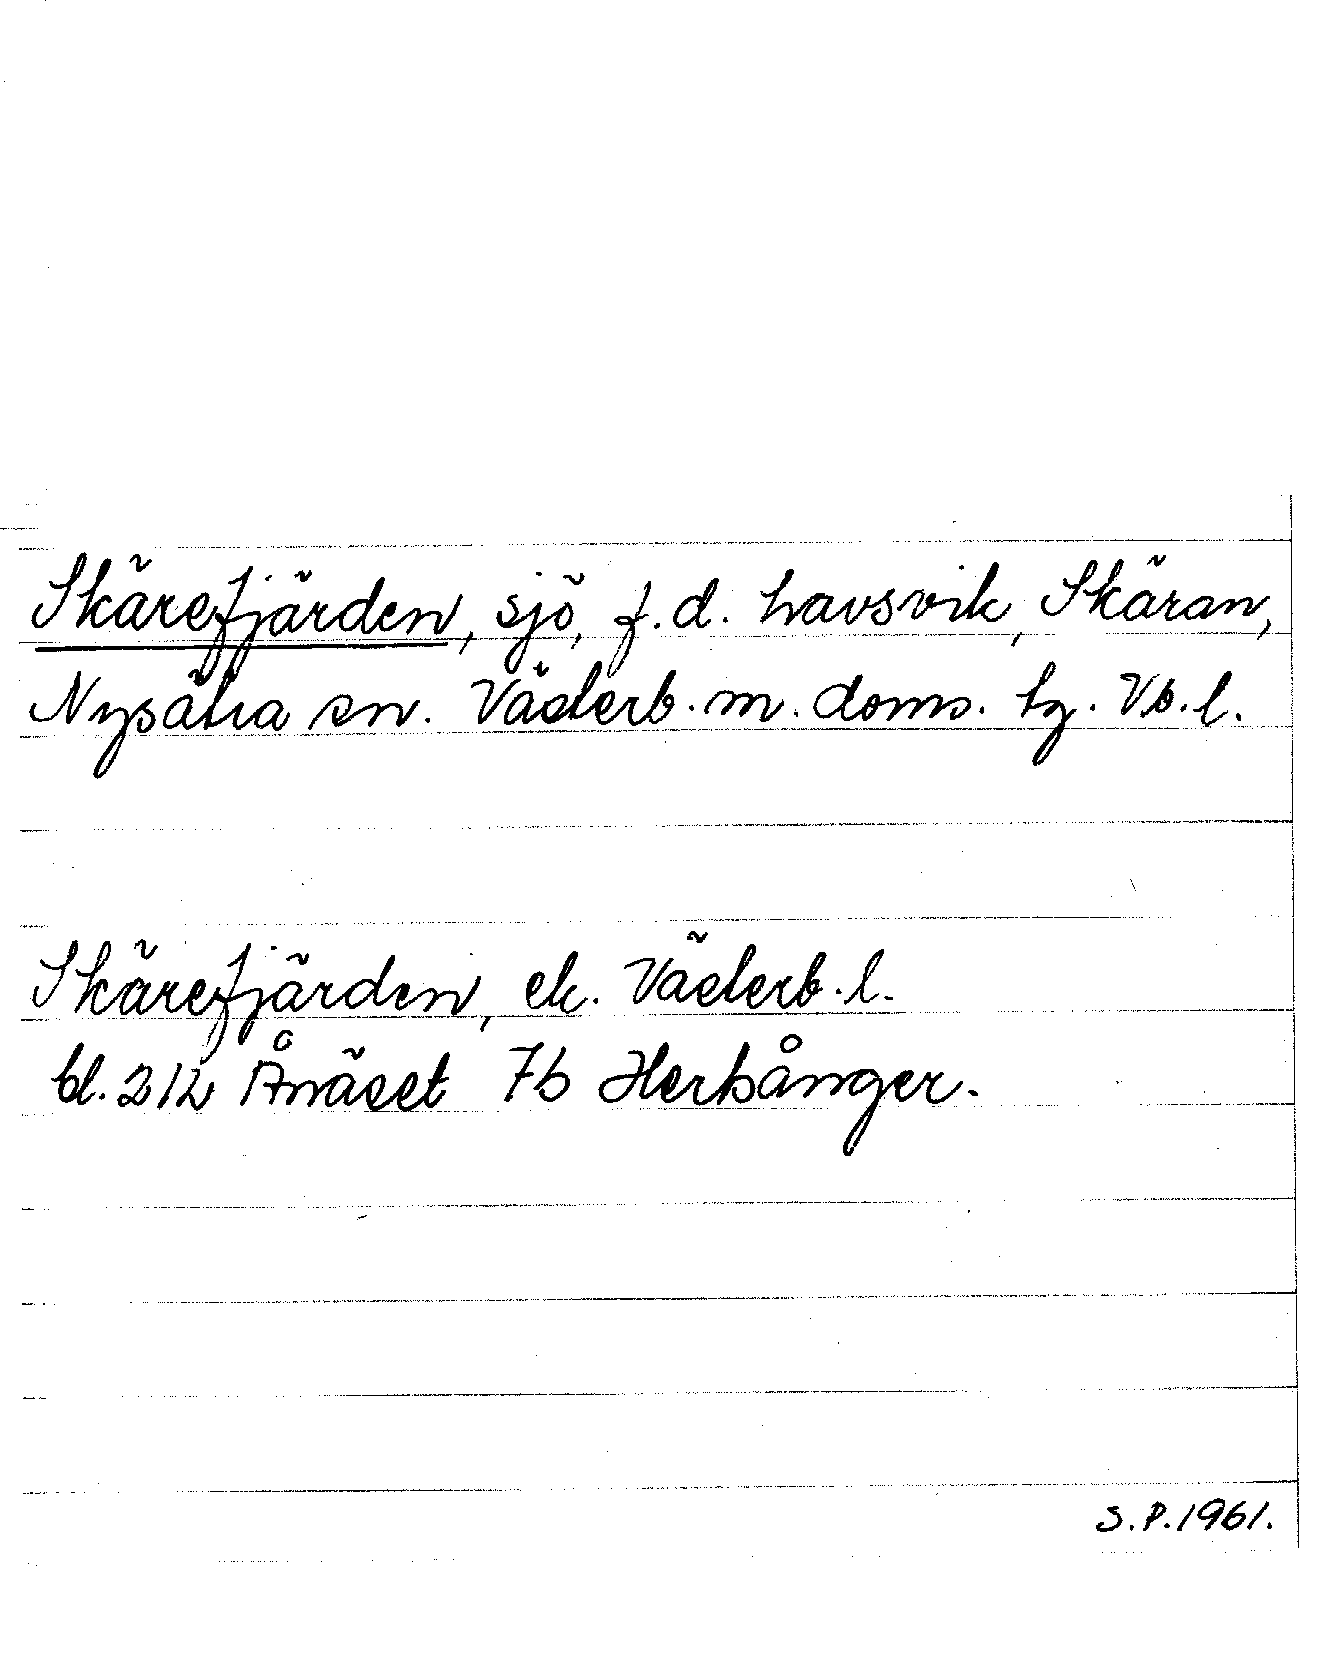 Skärefjärden, sjö, f.d. havsvik, Skäran,
Nysätra sn. Västerb. m. doms. tg. Vb. l.
Skärefjärden, ek. Västerb. l.
bl. 212 Ånäset 7b Hertsånger.
S.P. 1961.